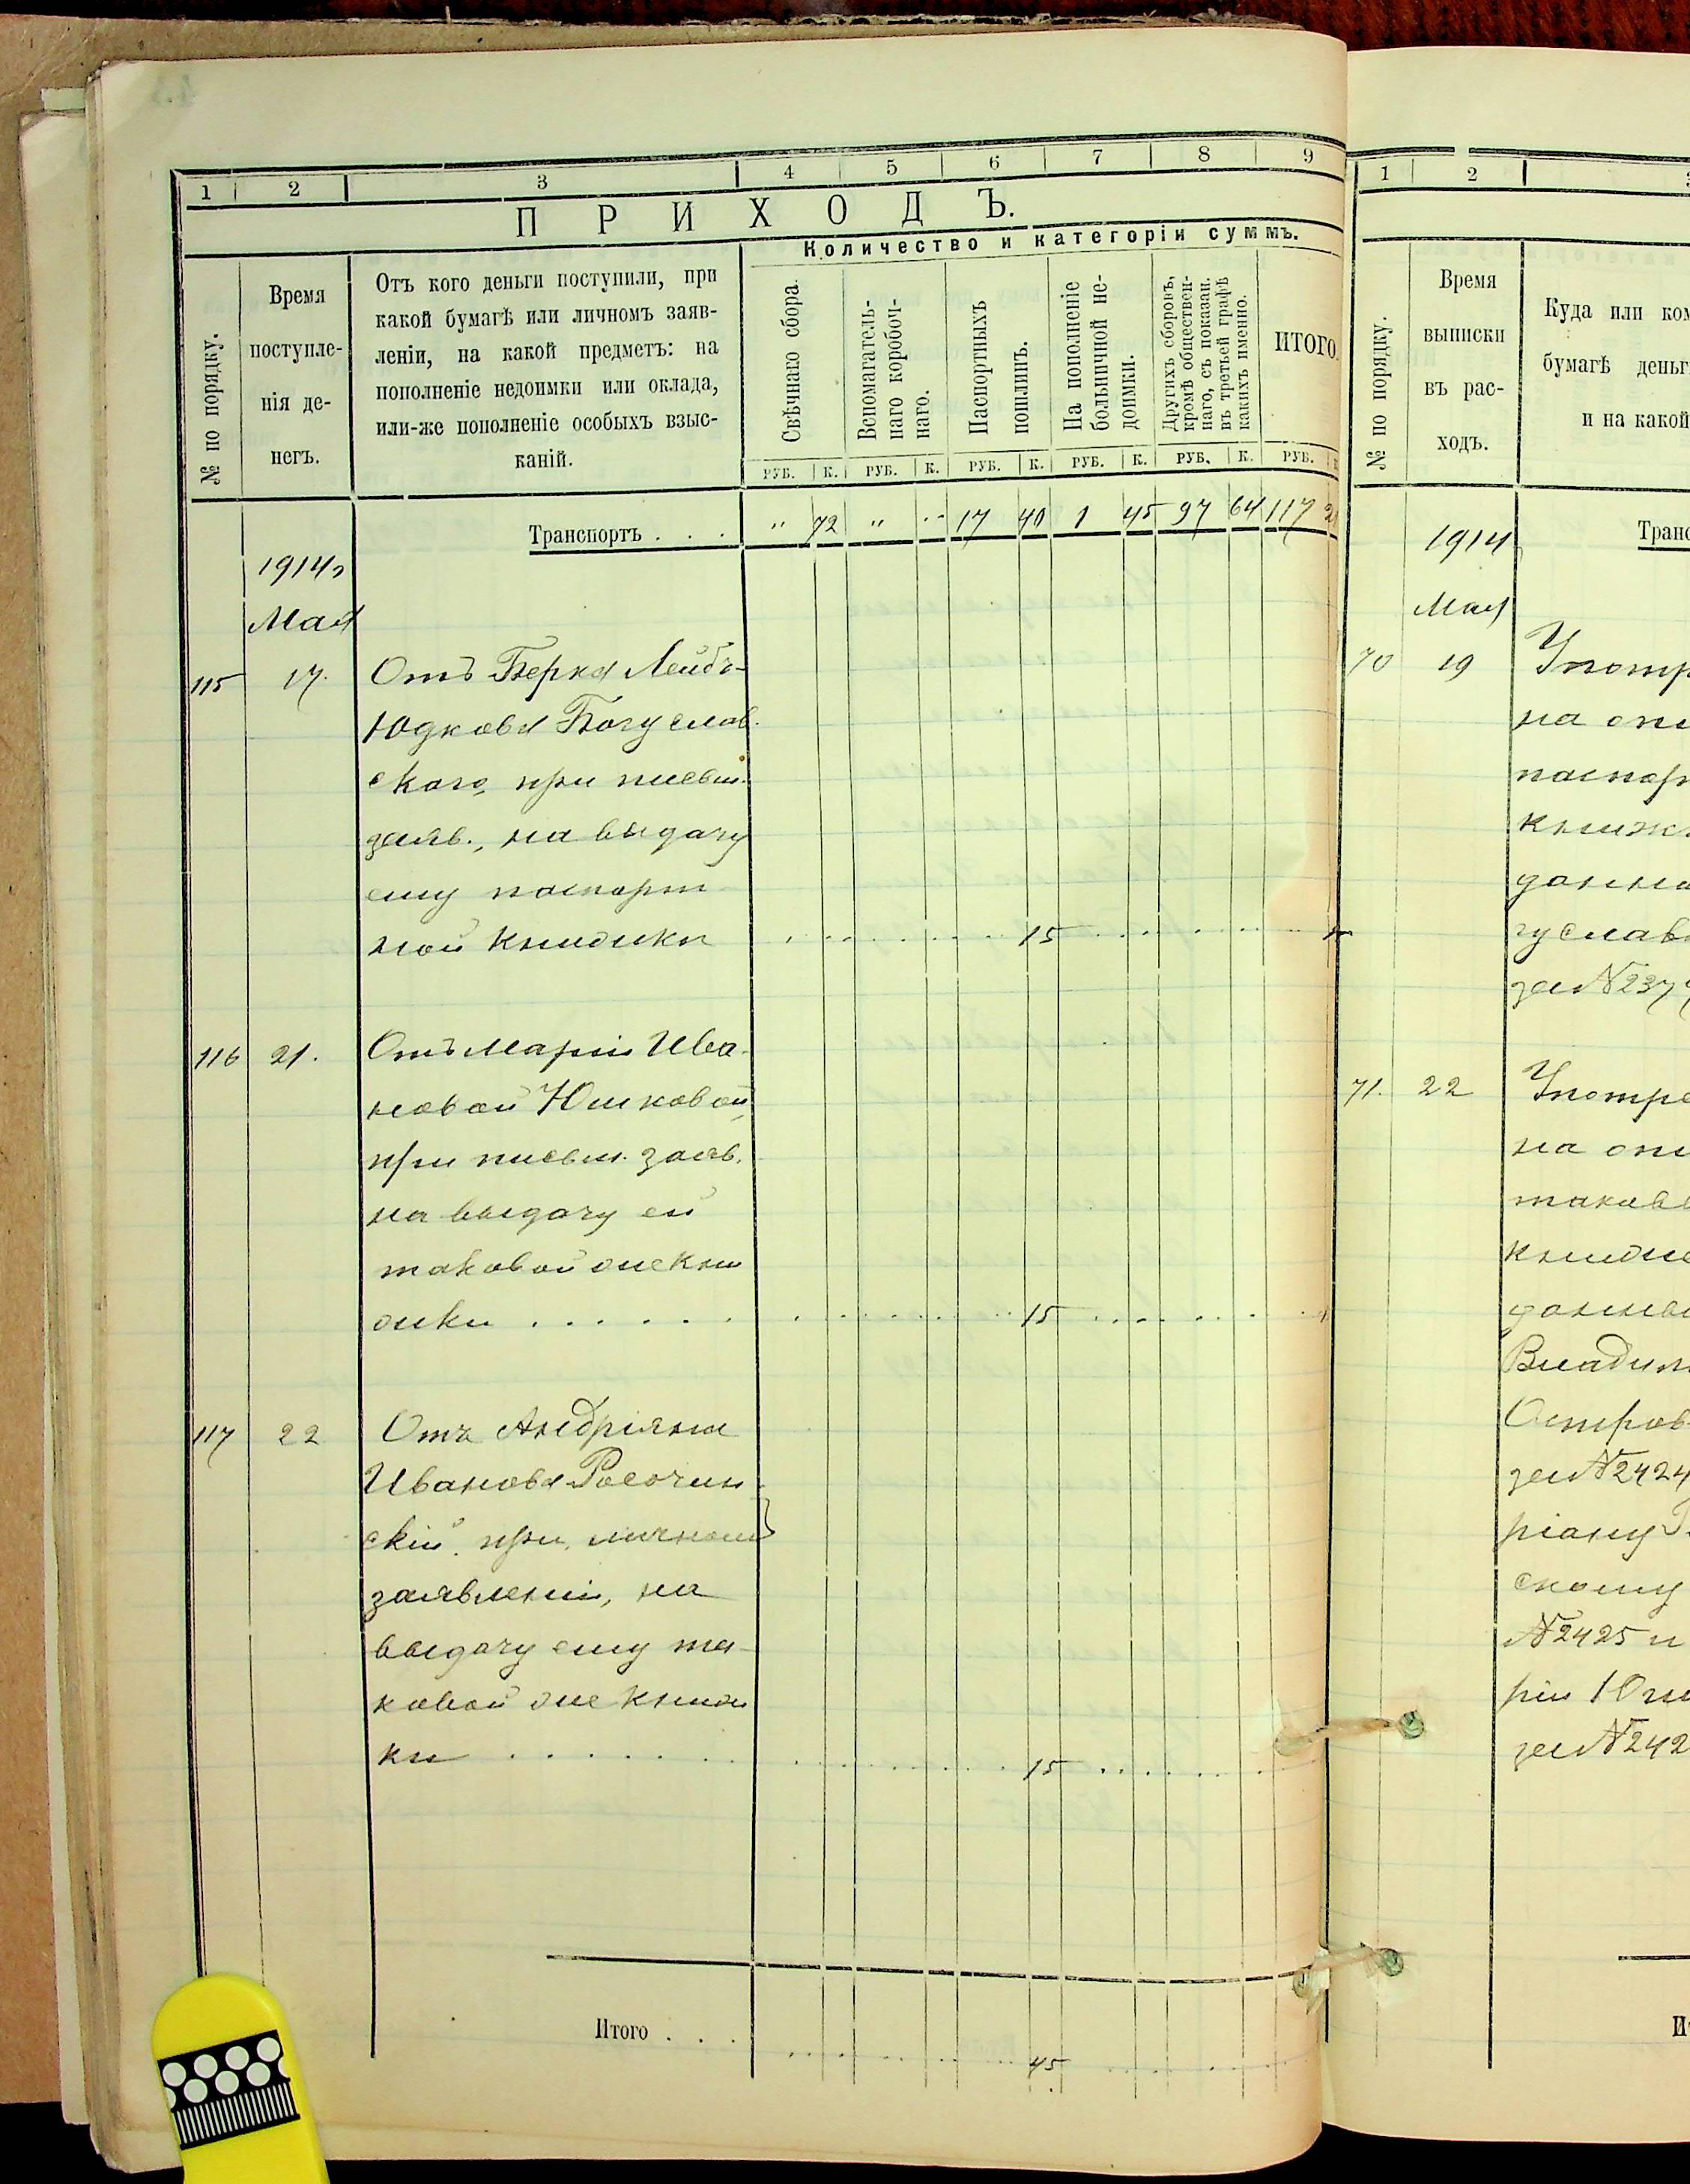 1 2 3 4 5 6 7 8 9
ПРИХОДЪ.
Количество и категоріи суммъ.
№ по порядку.
Время
поступле-
нія де-
негъ.
Отъ кого деньги поступили, при
какой бумагѣ или личномъ заяв-
леніи, на какой предметъ: на
пополненіе недоимки или оклада,
или-же пополненіе особыхъ взыс-
каній.
Свѣчнаго сбора.
Вспомагатель-
наго коробоч-
наго.
Паспортныхъ
пошлинъ.
На пополненіе
больничной не-
доимки.
Другихъ сборовъ,
кромѣ обществен-
наго, съ показан.
въ третьей графѣ
какихъ именно.
ИТОГО.
РУБ. К. РУБ. К. РУБ. К. РУБ. К. РУБ. К. РУБ.
Транспортъ . . . " 72 " .. 17 40 1 45 97 64 117
1914г
Мая
115 17. Отъ Берка Лейбъ-
Юдкова Богуслав-
скаго, при письм.
заяв., на выдачу
ему паспорт
ной книжки 15
116 21. Отъ Маріи Ива-
новой Юшковой,
при письм. заяв.
на выдачу ей
таковой же кни
жки . . . . . . 15
117 22 Отъ Андріяна
Иванова Росочин
скій при личном
заявленіи, на
выдачу ему та-
ковой же книж
ки . . . . . . . 15
Итого . . . 45
1 2
№ по порядку.
Время
выписки
въ рас-
ходъ.
Куда или ком
бумагѣ деньг
и на какой
Транс
1914
Мая
70 19 Употр
на опл
паспор
книж
данно
гуслав
за №237
71. 22 Употре
на опл
таковы
книже
данны
Владим
Остров
за №2424
ріану
скому
№2425 и
ріи Юш
за №242
И